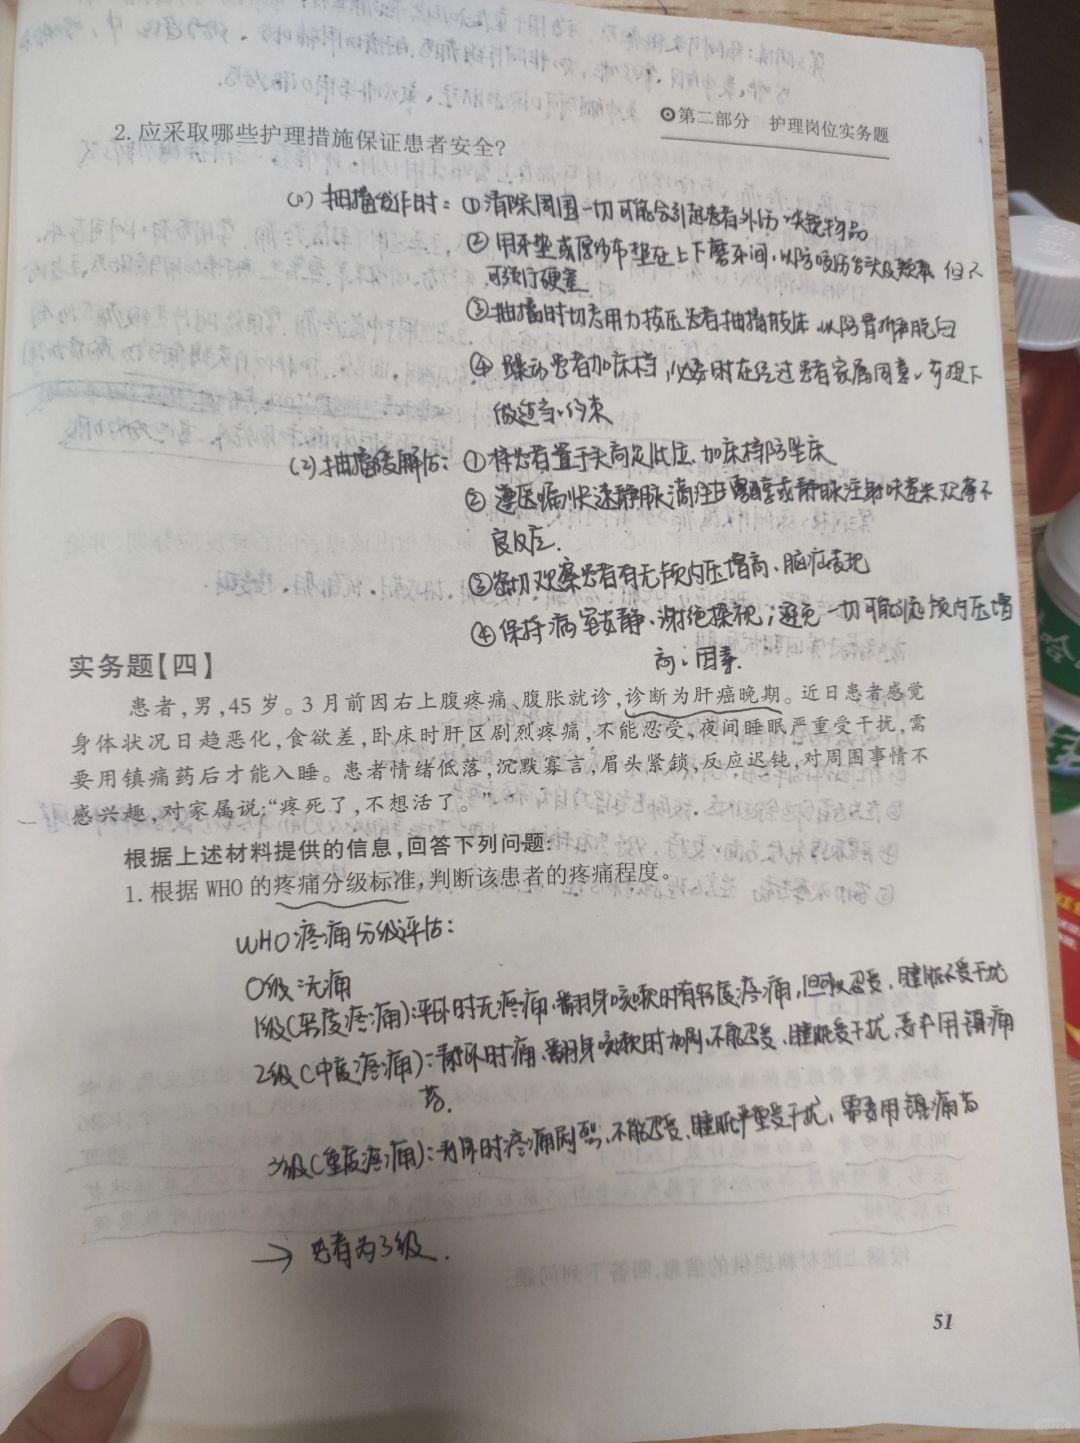 ⊙第二部分 护理岗位实务题
2. 应采取哪些护理措施保证患者安全?
(1) 抽搐发作时: ① 清除周围一切可能会引起患者外伤、尖锐物品
② 用牙垫或厚纱布垫在上下磨牙间,以防咬伤舌头及颊部 但不
可强行硬塞
③ 抽搐时切忌用力按压患者抽搐肢体 以防骨折和脱臼
④ 躁动患者加床档,必要时在经过患者家属同意、前提下
做适当、约束
(2) 抽搐缓解后: ① 将患者置于头高足低位、加床档防坠床
② 遵医嘱快速静脉滴注甘露醇或静脉注射呋塞米 观察不
良反应.
③ 密切观察患者有无颅内压增高、脑疝表现
④ 保持病室安静、谢绝探视;避免一切可能引起颅内压增
高、因素.
实务题【四】
患者,男,45 岁。3 月前因右上腹疼痛、腹胀就诊,诊断为肝癌晚期。近日患者感觉
身体状况日趋恶化,食欲差,卧床时肝区剧烈疼痛,不能忍受,夜间睡眠严重受干扰,需
要用镇痛药后才能入睡。患者情绪低落,沉默寡言,眉头紧锁,反应迟钝,对周围事情不
感兴趣,对家属说:“疼死了,不想活了。”
根据上述材料提供的信息,回答下列问题:
1. 根据 WHO 的疼痛分级标准,判断该患者的疼痛程度。
WHO疼痛分级评估:
0级:无痛
1级(轻度疼痛):平卧时无疼痛,翻身咳嗽时有轻度疼痛,但可以忍受、睡眠不受干扰
2级(中度疼痛):静卧时痛、翻身咳嗽时加剧,不能忍受、睡眠受干扰,要求用镇痛
药.
3级(重度疼痛):静卧时疼痛剧烈、不能忍受、睡眠严重受干扰,需要用镇痛药
→ 患者为3级.
51